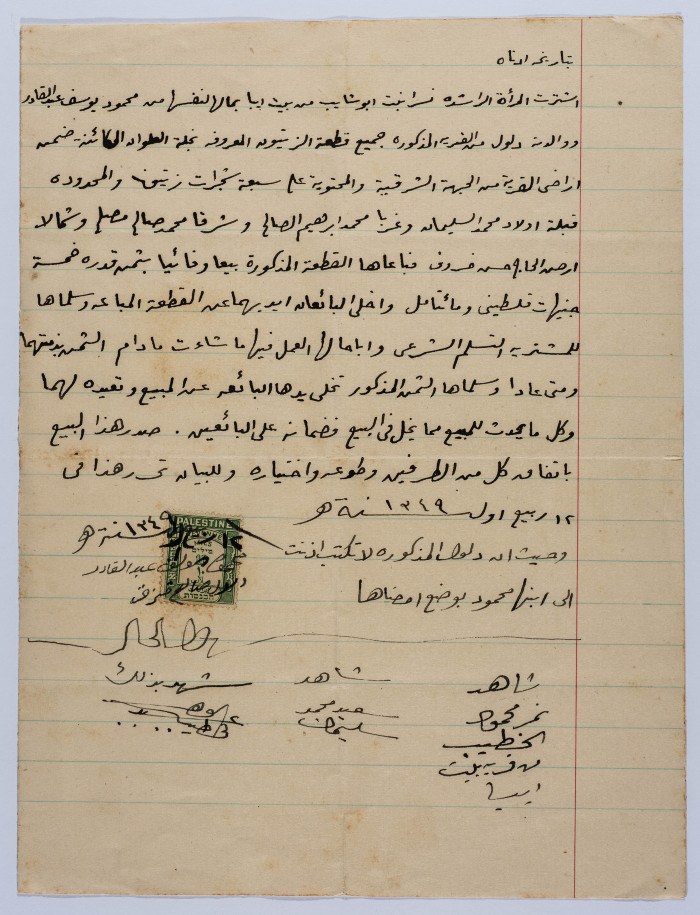 بتاريخه ادناه
اشترت المرأة الراشده نسرا بنت ابو شايب من بيت ايبا بمالها لنفسها من محمود يوسف عبد القادر
ووالدته دلول من القرية المذكوره جميع قطعة الزيتون المعروفه بخلة العلوان الكائنة ضمن
اراضي القرية من الجهة الشرقية والمحتوية على سبعة شجرات زيتون والمحدوده
قبلة اولاد محمد السليمان وغربا محمد ابراهيم الصالح وشرقا محمد صالح مصلح وشمالا
ارض الحاج حسن خروف فباعاها القطعة المذكورة بيعا وفائيا بثمن قدره خمسة
جنيهات فلسطيني ومائتا مل واخلى البائعان ايديهما عن القطعة المباعه وسلماها
للمشتريه التسلم الشرعي واباحا لها العمل فيها ما شاءت ما دام الثمن بذمتهما
ومتى عادا وسلماها الثمن المذكور تخلي يدها البائعه عن المبيع وتعيده لهما
وكل ما يحدث للمبيع مما يخل في البيع فضمانه على البائعين . صدر هذا البيع
باتفاق كل من الطرفين وطوعه واختياره وللبيان تحرر هذا في
١٢ ربيع اول سنة ١٣٤٩ هـ
وحيث ان دلول المذكوره لا تكتب اذنت
الى ابنها محمود بوضع امضاها
PALESTINE
١٣٤٩ سنة هـ
عبد القادر
شاهد
نمر محمود
الخطيب
من قرية بيت
ايبا
شاهد
سعيد محمد
سليمان
شهد بذلك